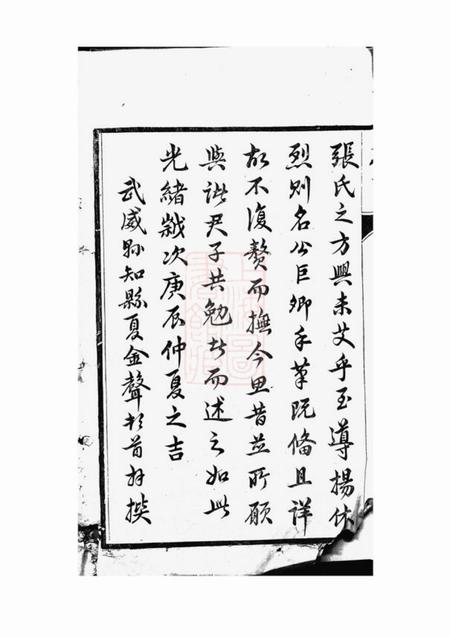 張氏之方興未艾乎至導揚休
烈則名公巨卿手筆既備且詳
故不復贅而撫今思昔並所願
與諸君子共勉者而述之如此
光緒歲次庚辰仲夏之吉
武威縣知縣夏金聲頓首拜撰